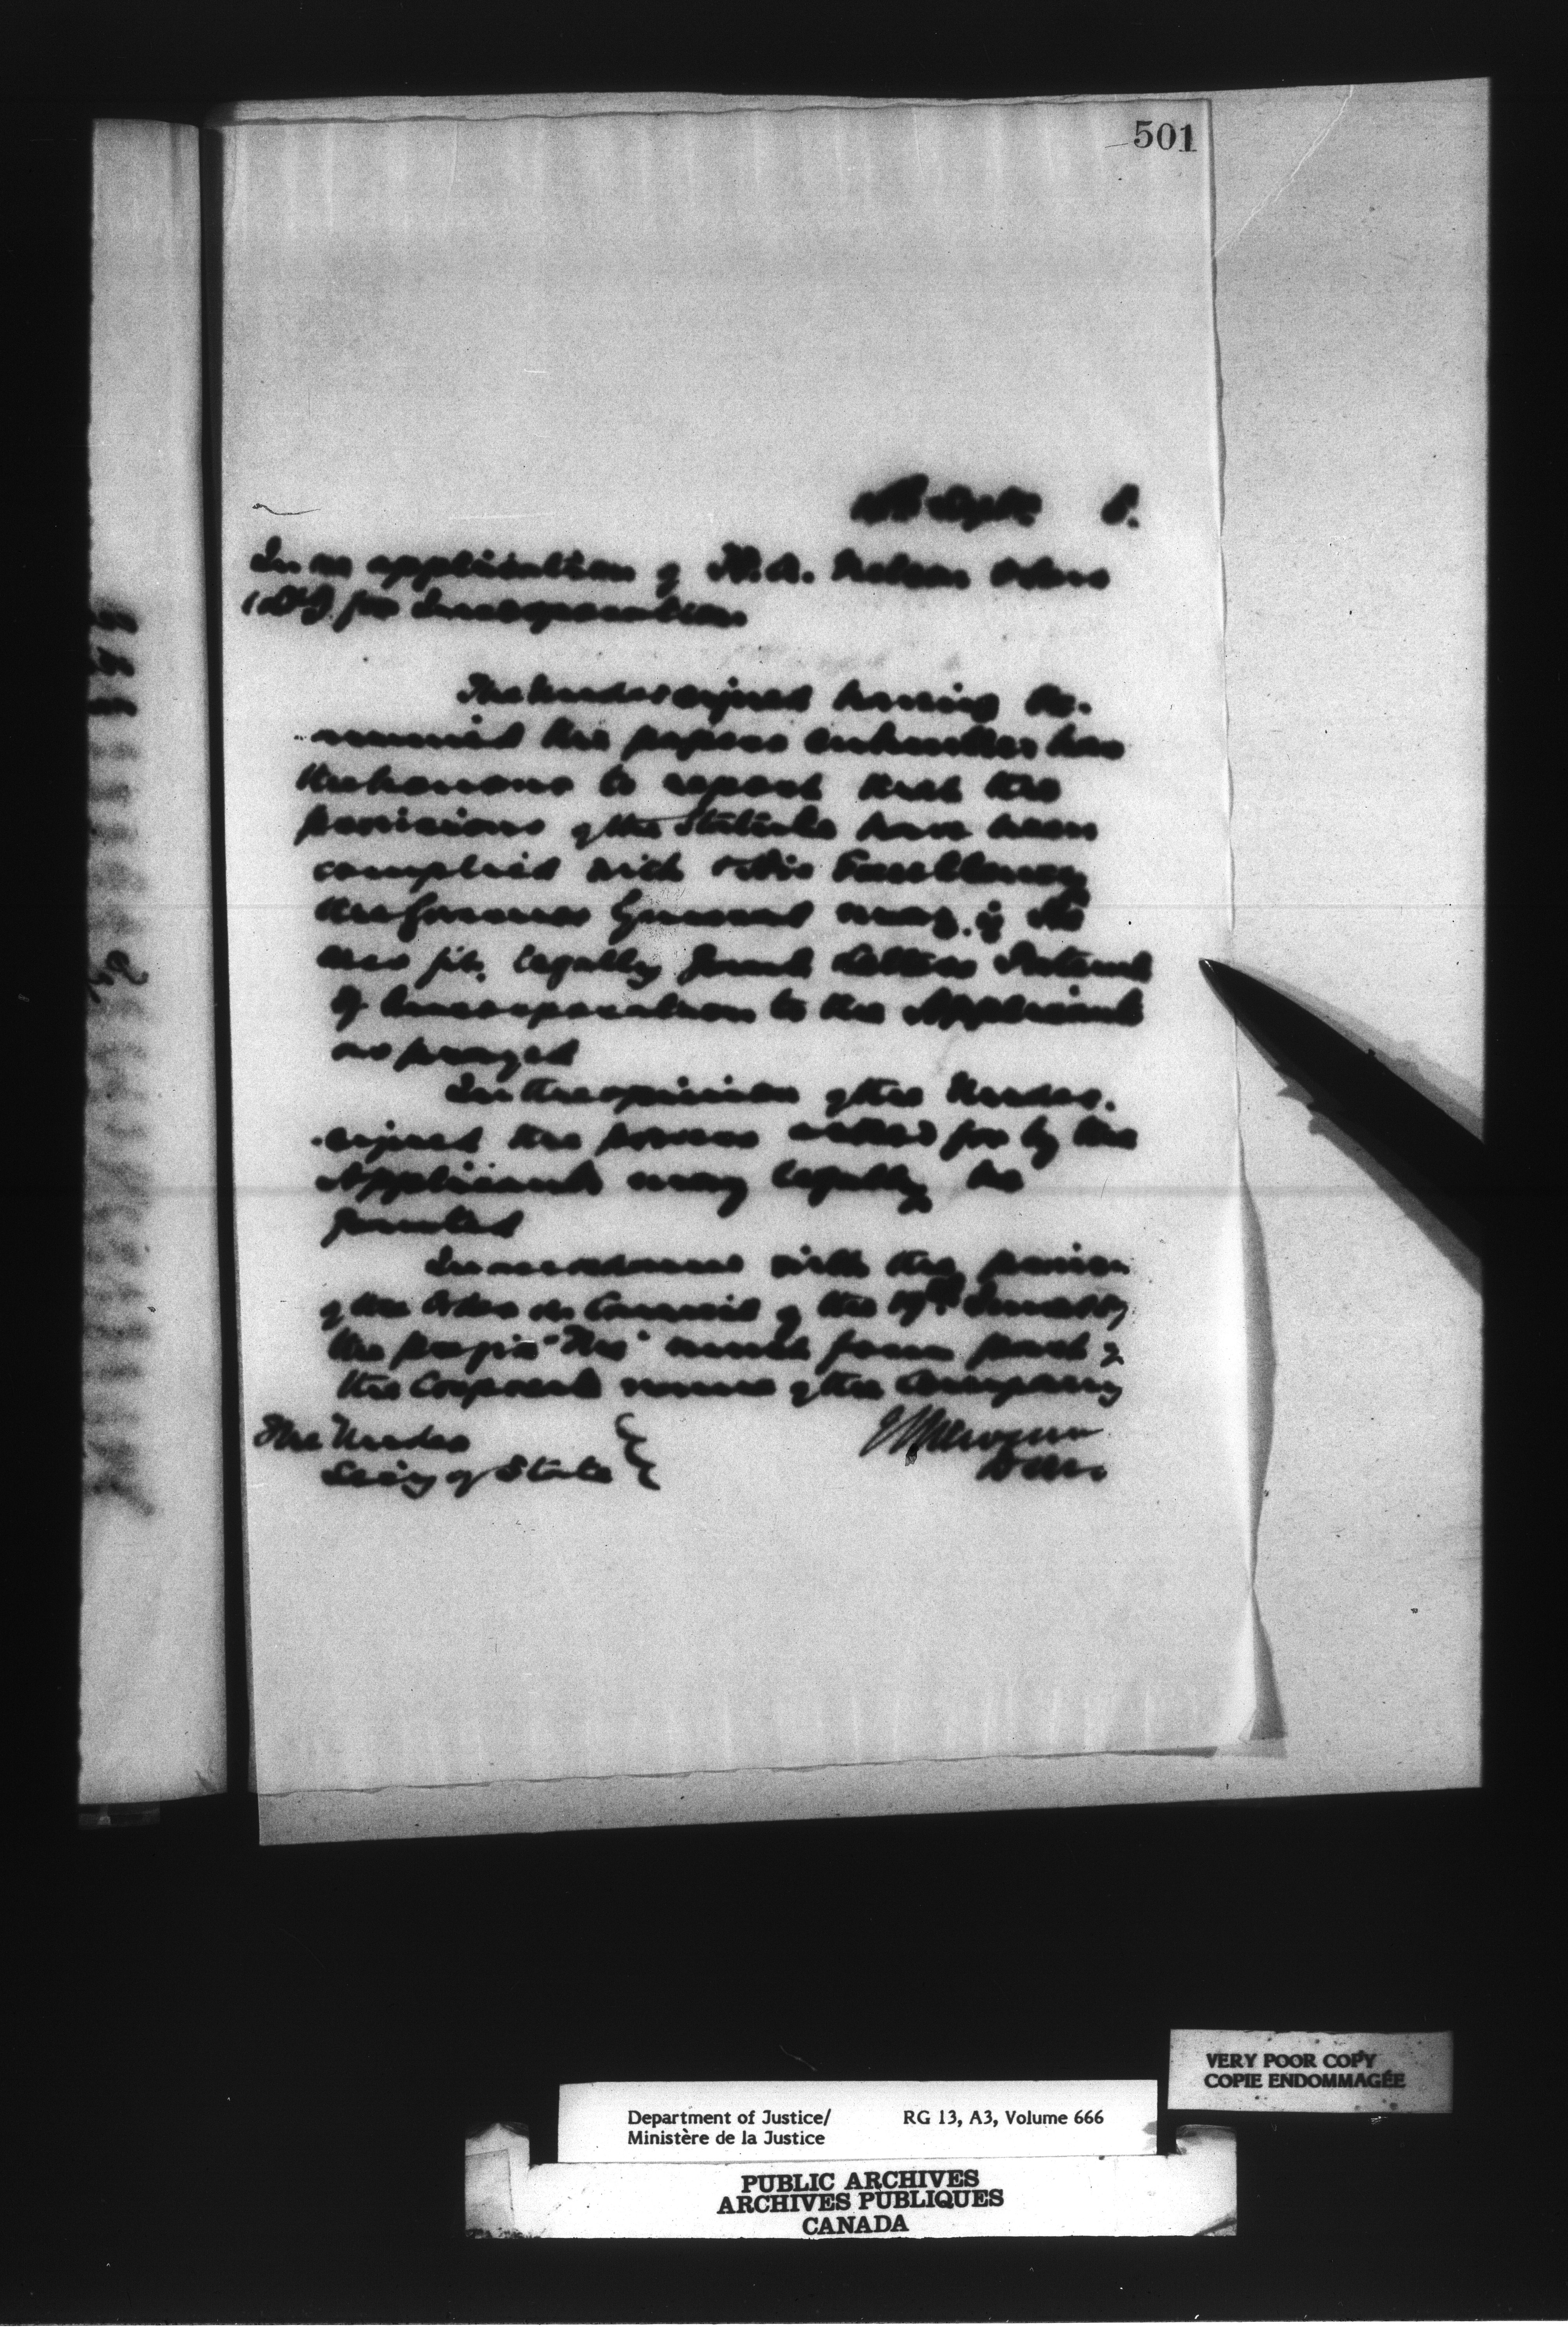 501
Sept. 8.
In re application of H. A. Nelson & Sons
(Ld) for Incorporation
The Undersigned having Ex-
-amined the papers submitted has
the honour to report that the
provisions of the Statute have been
complied with & His Excellency
the Governor General may, if He
sees fit, legally grant Letters Patent
of Incorporation to the Applicants
as prayed
In the opinion of the Under-
-signed the powers asked for by the
Applicants may legally be
granted
In accordance with the
of the Order in Council of the
the prefix "The" must form part of
the Corporate name of the Company
The Under
Secy of State
VERY POOR COPY
COPIE ENDOMMAGÉE
Department of Justice/ RG 13, A3, Volume 666
Ministère de la Justice
PUBLIC ARCHIVES
ARCHIVES PUBLIQUES
CANADA